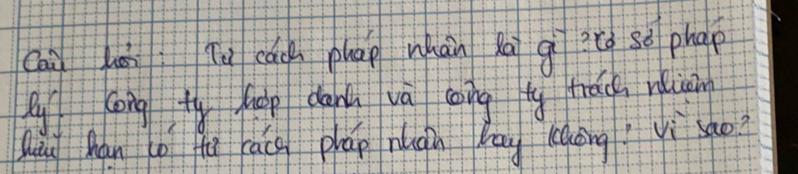 Câu hỏi: Tư cách pháp nhân là gì? cơ sở pháp
lý? Công ty hợp danh và công ty trách nhiệm
hữu hạn có tư cách pháp nhân hay không? vì sao?